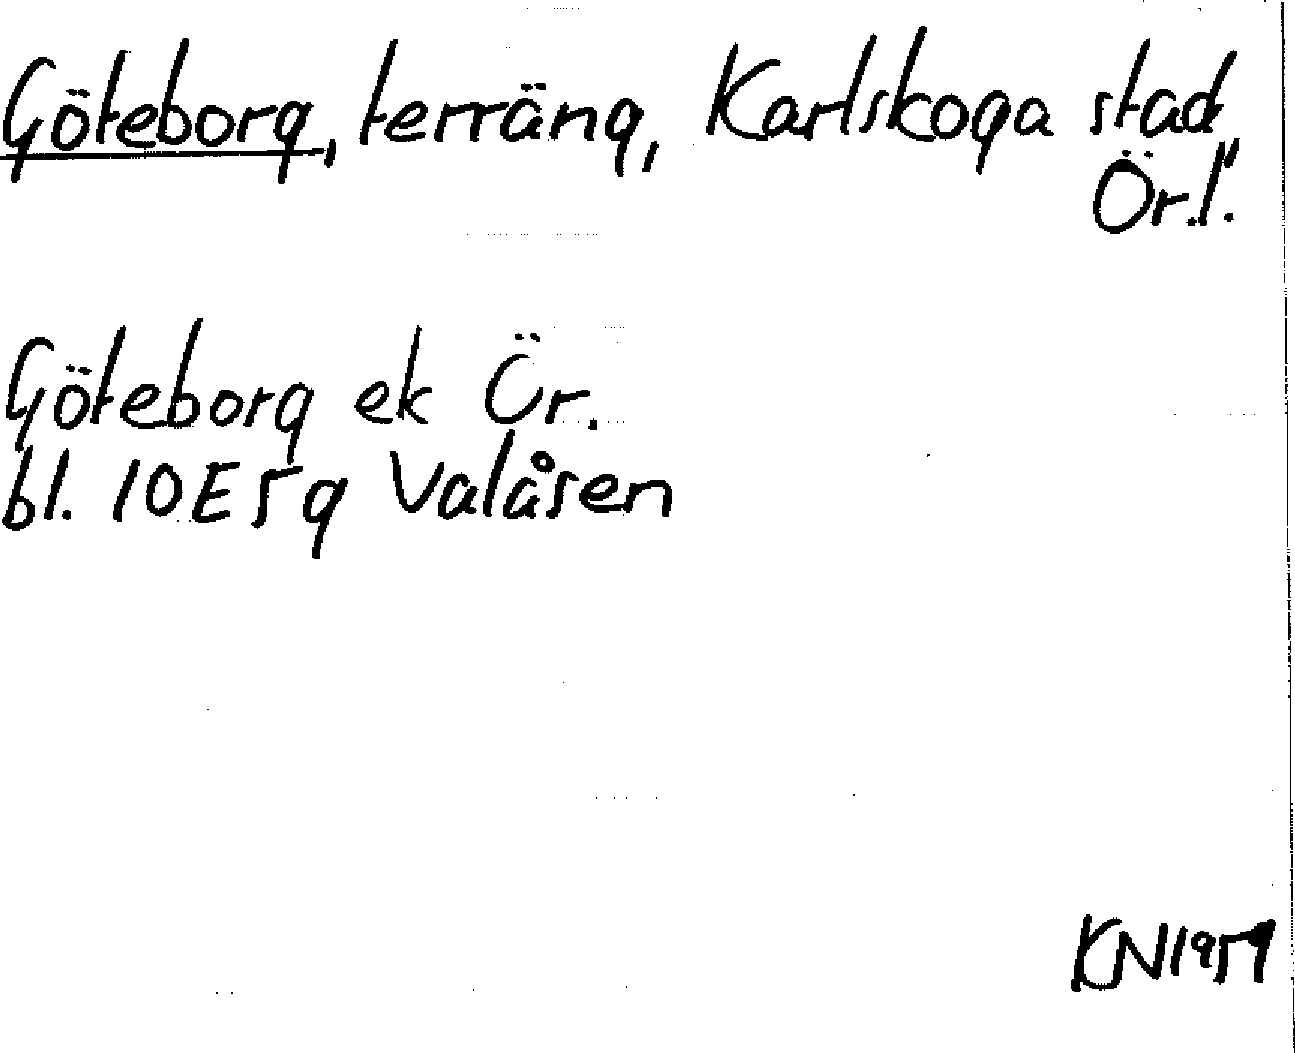 Göteborg, terräng, Karlskoga stad,
Ör.l.
Göteborg ek Ör.
bl. 10E5g Valåsen